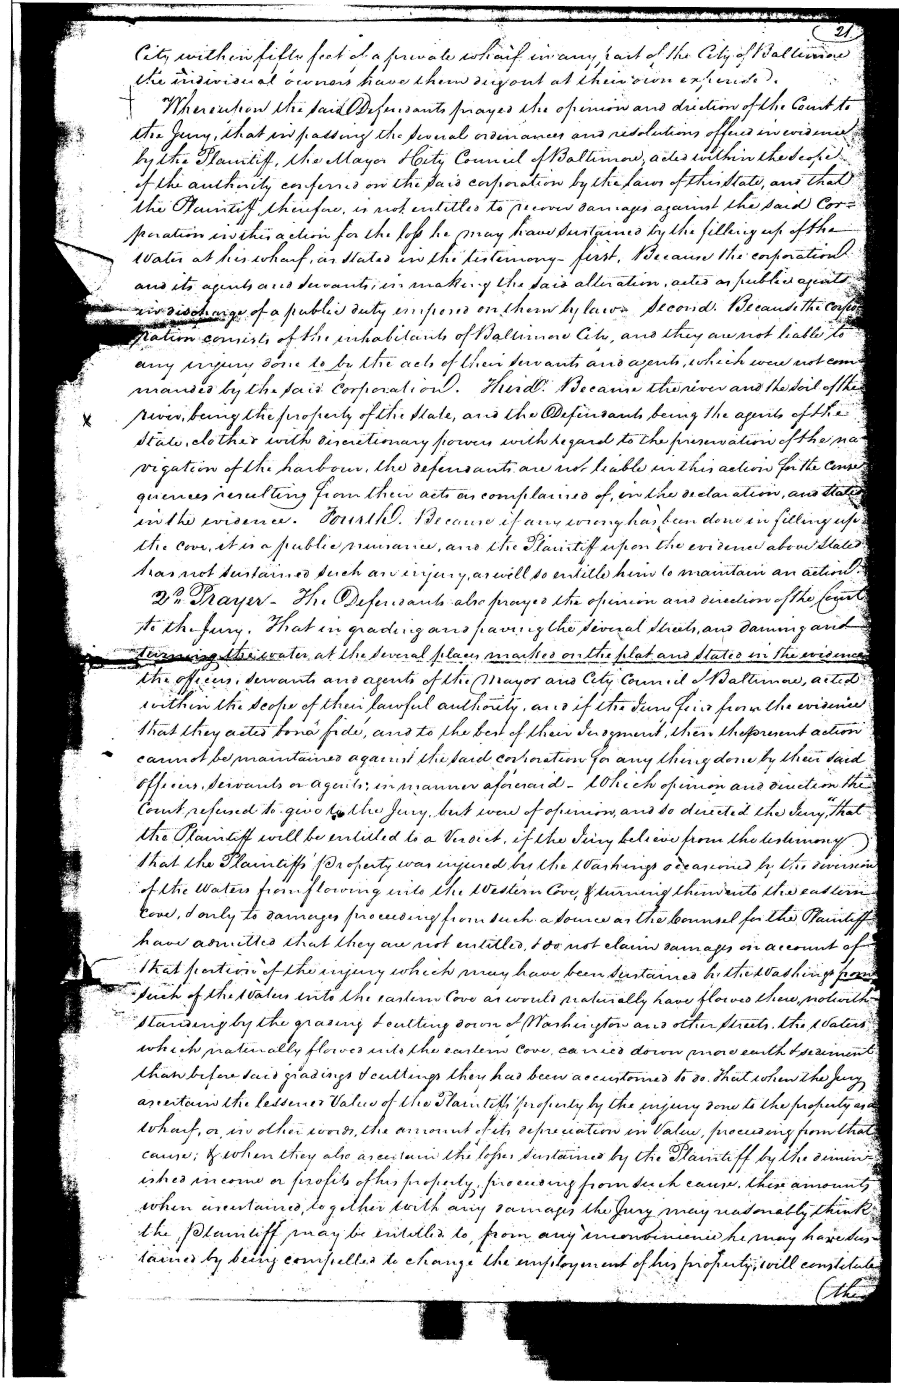 21
City within fifty feet of a private wharf in any part of the City of Baltimore
the individual owners have them dug out at their own expense.
Whereupon the said Defendants prayed the opinion and direction of the Court to
the Jury, that in passing the several ordinances and resolutions offered in evidence
by the Plaintiff, the Mayor & City Council of Baltimore, acted within the scope
of the authority conferred on the said corporation by the laws of this State, and that
the Plaintiff therefore, is not entitled to recover damages against the said Cor=
poration in this action for the loss he may have sustained by the filling up of the
water at his wharf, as stated in the testimony – first. Because the corporation
and its agents and servants, in making the said alteration, acted as public agents
in discharge of a public duty imposed on them by law – Second. Because the corpo
ration consists of the inhabitants of Baltimore City, and they are not liable to
any injury done to by the acts of their servants and agents, which were not com
manded by the said Corporation. Third. Because the river and the soil of the
river, being the property of the State, and the Defendants being the agents of the
State, clothed with discretionary powers with regard to the preservation of the na
vigation of the harbour, the defendants are not liable in this action for the conse
quences resulting from their acts as complained of, in the declaration, and stated
in the evidence. Fourth. Because if any wrong has been done in filling up
the cove, it is a public nuisance, and the Plaintiff upon the evidence above stated
has not sustained such an injury, as will so entitle him to maintain an action.
2nd Prayer – The Defendants also prayed the opinion and direction of the Court
to the Jury. That in grading and paving the several streets, and daming and
turning the water, at the several places marked on the plat and stated in the evidence
the officers, servants and agents of the Mayor and City Council of Baltimore, acted
within the scope of their lawful authority, and if the Jury find from the evidence
that they acted bona fide, and to the best of their Judgment, then the present action
cannot be maintained against the said corporation for any thing done by their said
officers, servants or agents, in manner aforesaid – Which opinion and direction the
Court refused to give to the Jury, but were of opinion, and so directed the Jury, "that
the Plaintiff will be entitled to a Verdict, if the Jury believe from the testimony
that the Plaintiffs property was injured by the Washings occasioned by the diversion
of the Waters from flowing into the Western Cove, & turning them into the eastern
cove, & only to damages proceeding from such a source as the Counsel for the Plaintiff
have admitted that they are not entitled, & do not claim damages on account of
that portion of the injury which may have been sustained by the Washings from
such of the Waters into the eastern Cove as would naturally have flowed there, notwith
standing by the grading & cutting down of Washington and other Streets, the Waters
which naturally flowed into the eastern Cove, carried down more earth & sediment
than before said gradings & cuttings they had been accustomed to do. That when the Jury
ascertain the lessened Value of the Plaintiffs' property by the injury done to the property as a
wharf, or, in other words, the amount of its depreciation in Value, proceeding from that
cause; & when they also ascertain the losses sustained by the Plaintiff by the dimin=
ished income or profits of his property, proceeding from such cause, these amounts
when ascertained, together with any damages the Jury may reasonably think
the Plaintiff may be entitled to, from any inconvenience he may have sus=
tained by being compelled to change the employment of his property, will constitute
(the